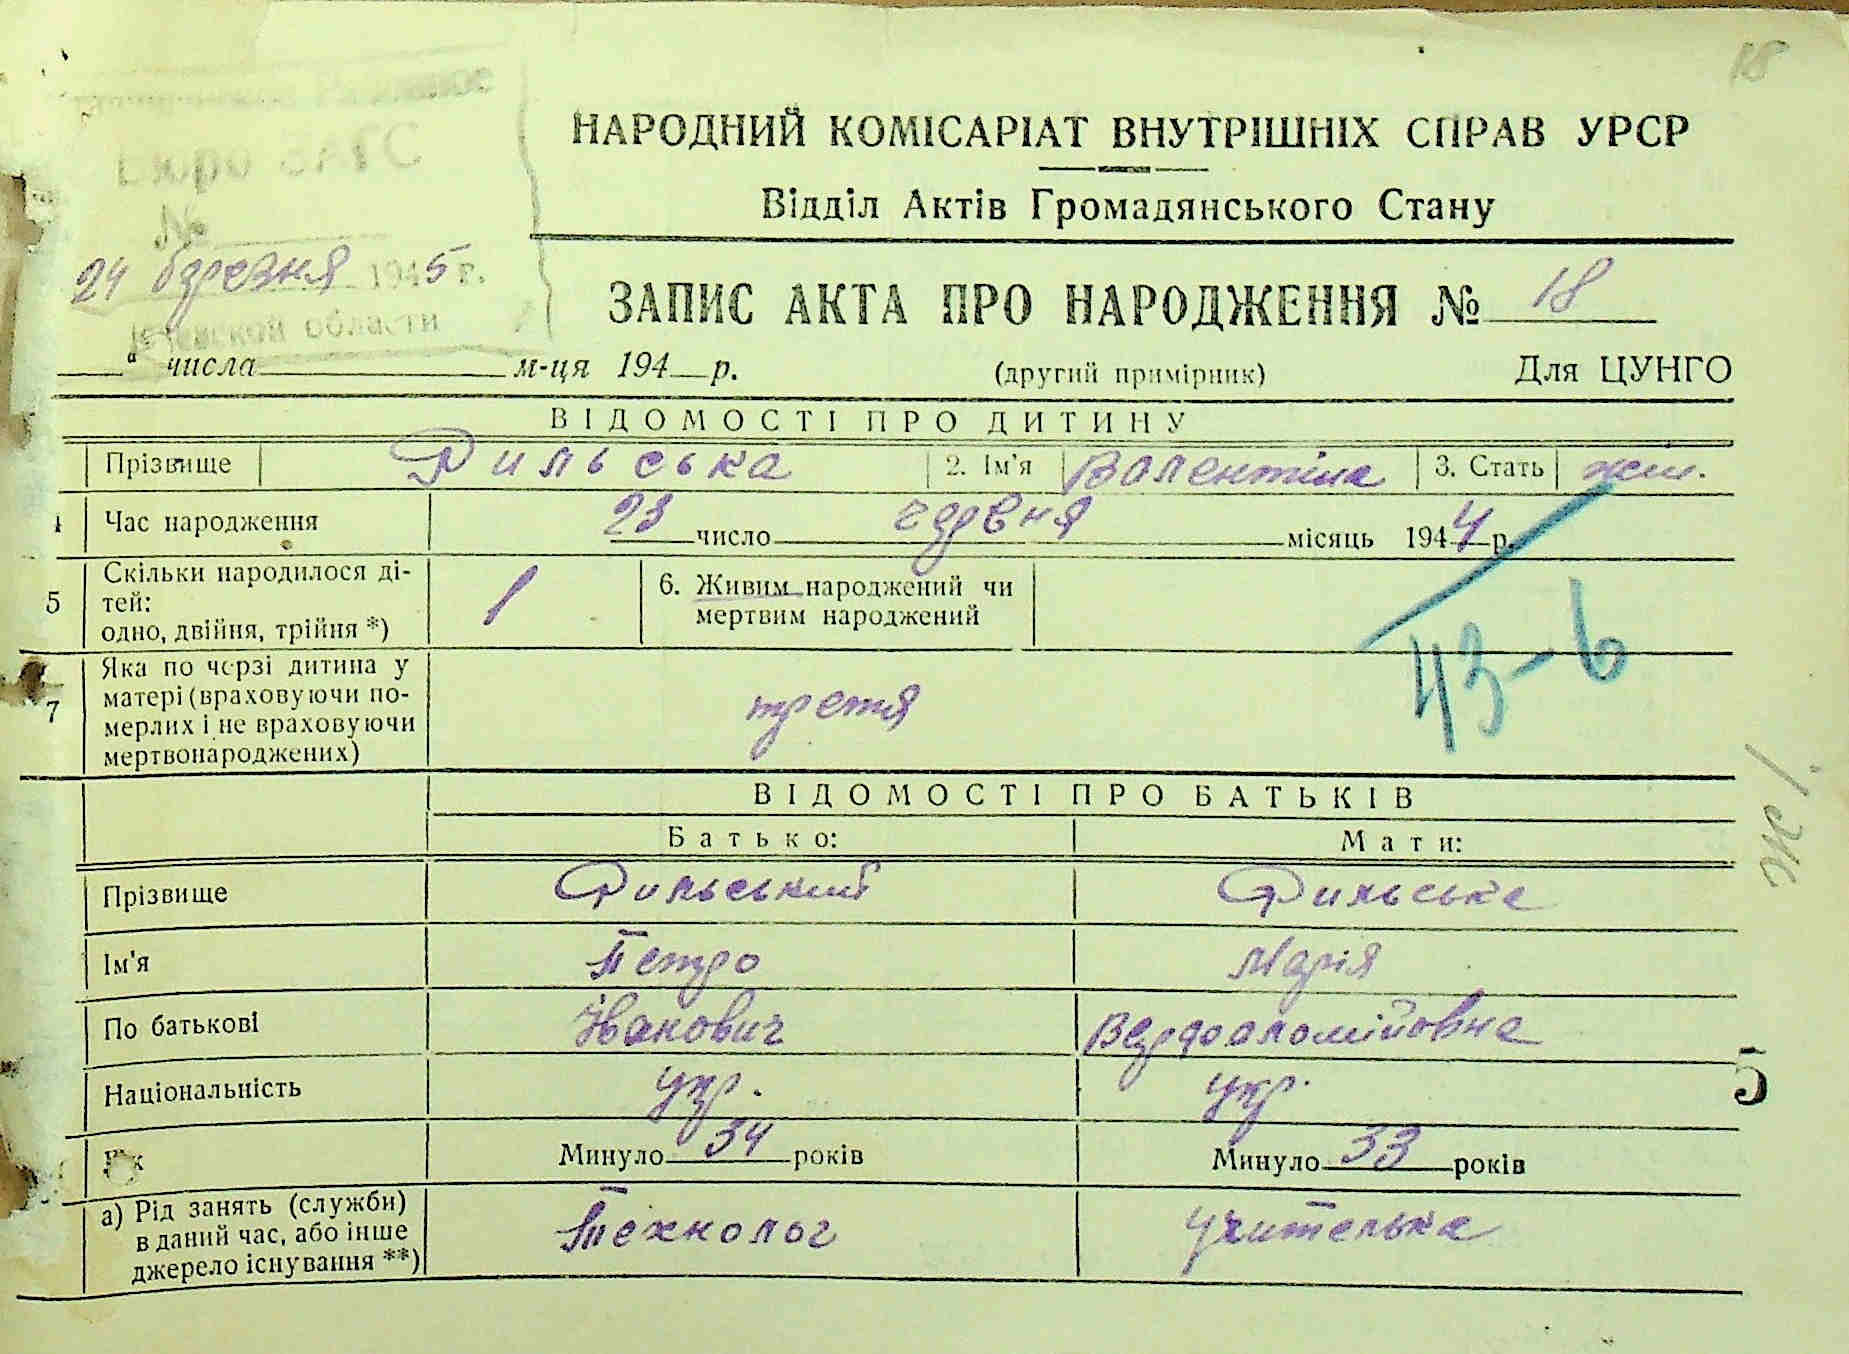 18
Бюро ЗАГС
№
24 березня 1945 г.
Киевской области
НАРОДНИЙ КОМІСАРІАТ ВНУТРІШНІХ СПРАВ УРСР
Відділ Актів Громадянського Стану
ЗАПИС АКТА ПРО НАРОДЖЕННЯ № 18
" числа м-ця 194 р. (другий примірник) Для ЦУНГО
ВІДОМОСТІ ПРО ДИТИНУ
Прізвище Рильська 2. Ім'я Валентіна 3. Стать жін.
4 Час народження 23 число червня місяць 1944 р.
5 Скільки народилося дітей: одно, двійня, трійня *) 1 6. Живим народжений чи мертвим народжений
43-6
7 Яка по черзі дитина у матері (враховуючи померлих і не враховуючи мертвонароджених) третя
ВІДОМОСТІ ПРО БАТЬКІВ
Батько: Мати:
Прізвище Рильський Рильська
Ім'я Петро Марія
По батькові Іванович Варфоломіївна
Національність укр. укр.
5
Вік Минуло 34 років Минуло 33 років
а) Рід занять (служби) в даний час, або інше джерело існування **) Технолог Учителька